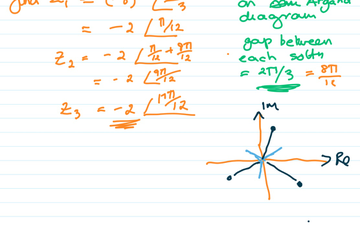 = -2 ∠π/12
Z2 = -2 ∠π/12 + 8π/12
= -2 ∠9π/12
Z3 = -2 ∠17π/12
on Argand
diagram
gap between
each
= 2π/3 = 8π/12
IM
Re